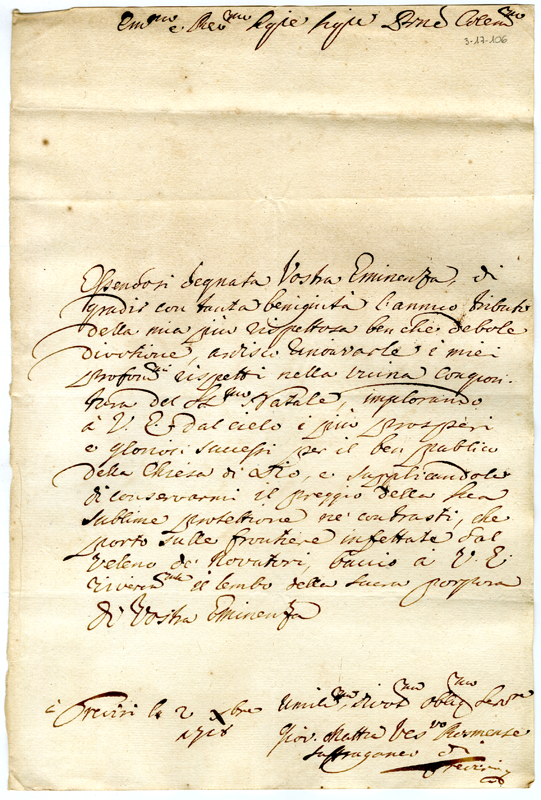 Em.mo e Rev.mo Sig.re Sig.re Pron Colen.mo
3-17-106
Essendosi degnata Vostra Eminenza, di
gradir con tanta benignità l'annuo tributo
della mia più rispettosa benche debole
divotione, ardisco rinovarle i miei
profondi rispetti nella vicina congion-
tura del SS.mo Natale, implorando
à V. E. dal cielo i più prosperi
e gloriosi successi per il ben publico
della Chiesa di Dio, e supplicandola
di conservarmi il preggio della sua
sublime protettione ne' contrasti, che
porto sulle frontiere infettate dal
veleno de' Novatori, baccio à V. E.
river.mte il lembo della sacra porpora
di Vostra Eminenza
Treviri li 2 Xbre
1718
Umil.mo, divot.mo oblig.mo Ser.re
Giov. Mattia Ves.vo
Suffraganeo di
Treviri